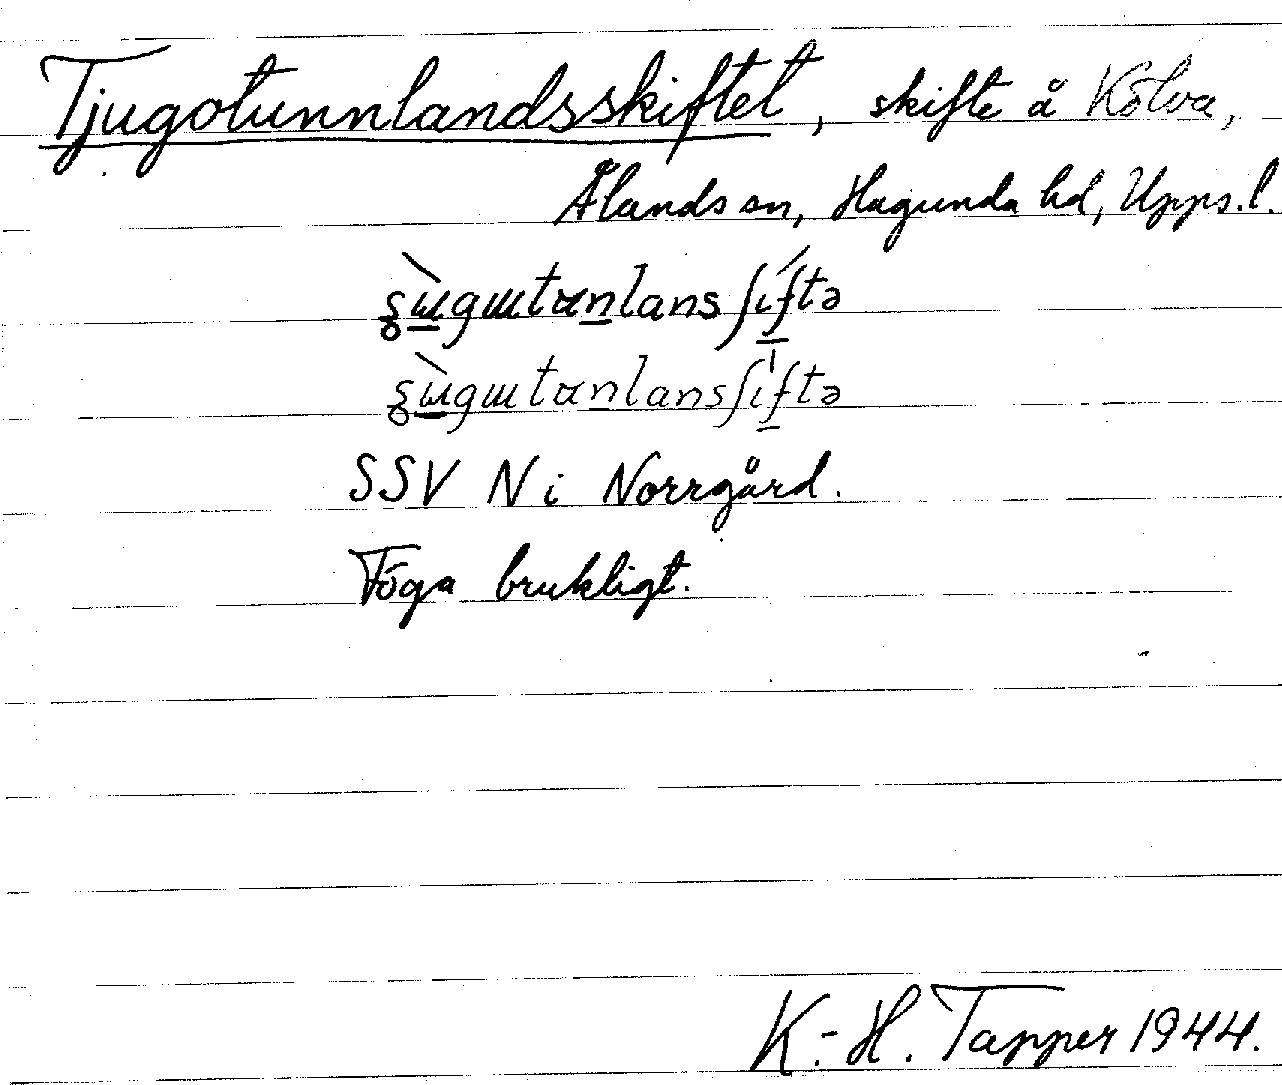 Tjugotunnlandsskiftet, skifte å Kölva,
Ålands sn, Hagunda hd, Upps. l.
SSV N i Norrgård.
Föga brukligt.
K.-H. Tapper 1944.